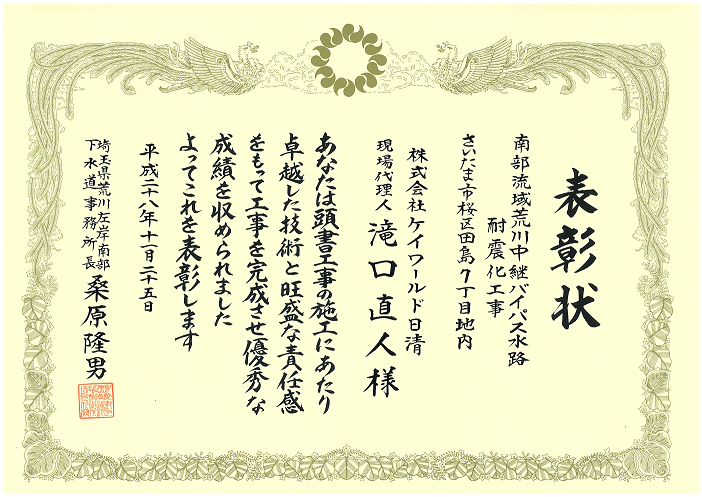 表彰状
南部流域荒川中継バイパス水路
耐震化工事
さいたま市桜区田島7丁目地内
株式会社ケイワールド日清
現場代理人 滝口直人様
あなたは頭書工事の施工にあたり
卓越した技術と旺盛な責任感
をもって工事を完成させ優秀な
成績を収められました
よってこれを表彰します
平成二十八年十一月二十五日
埼玉県荒川左岸南部
下水道事務所長 桑原隆男